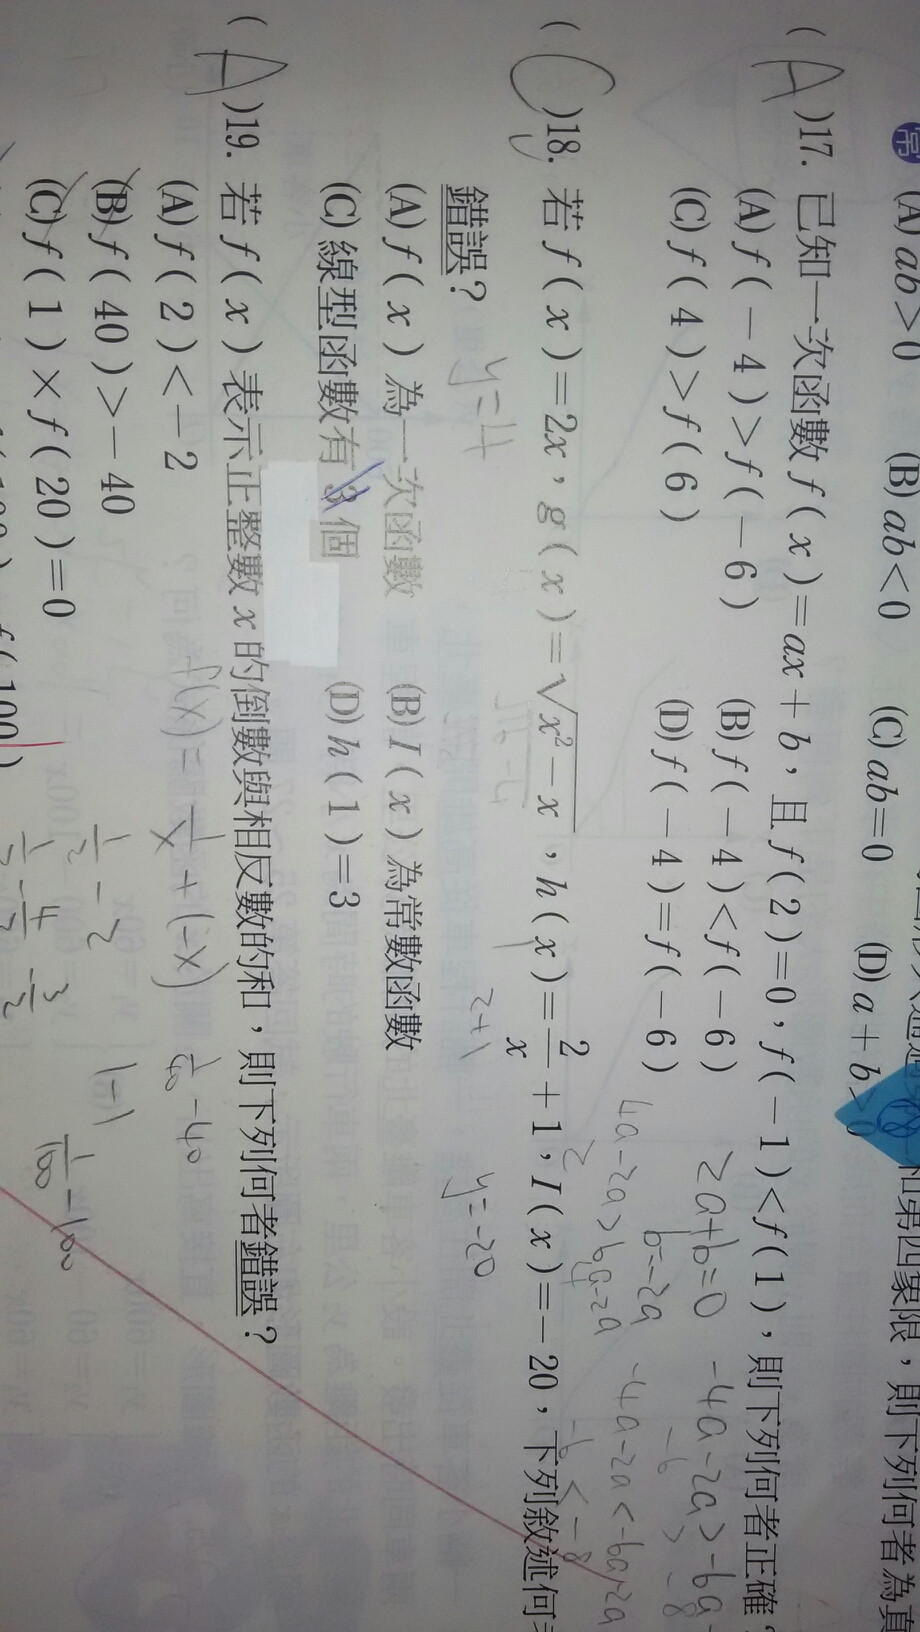 常 (A) ab>0 (B) ab<0 (C) ab=0 (D) a+b>0
和第四象限，則下列何者為真
(A)17. 已知一次函數 f(x)=ax+b，且 f(2)=0，f(-1)<f(1)，則下列何者正確？
(A) f(-4)>f(-6) (B) f(-4)<f(-6)
(C) f(4)>f(6) (D) f(-4)=f(-6)
2a+b=0
b=-2a
-4a-2a>-6a
-6>-8
4a-2a>6a-2a
-4a-2a<-6a-2a
-6<-8
(C)18. 若 f(x)=2x，g(x)=√x²-x，h(x)=2/x+1，I(x)=-20，下列敘述何
錯誤？
y=4
2+1
y=-20
(A) f(x) 為一次函數 (B) I(x) 為常數函數
(C) 線型函數有 3 個 (D) h(1)=3
(A)19. 若 f(x) 表示正整數 x 的倒數與相反數的和，則下列何者錯誤？
f(x)=1/x+(-x)
(A) f(2)<-2
1/40-40
(B) f(40)>-40
1/2-2
1-1
(C) f(1)×f(20)=0
1/2-4/2
-3/2
1/100-100